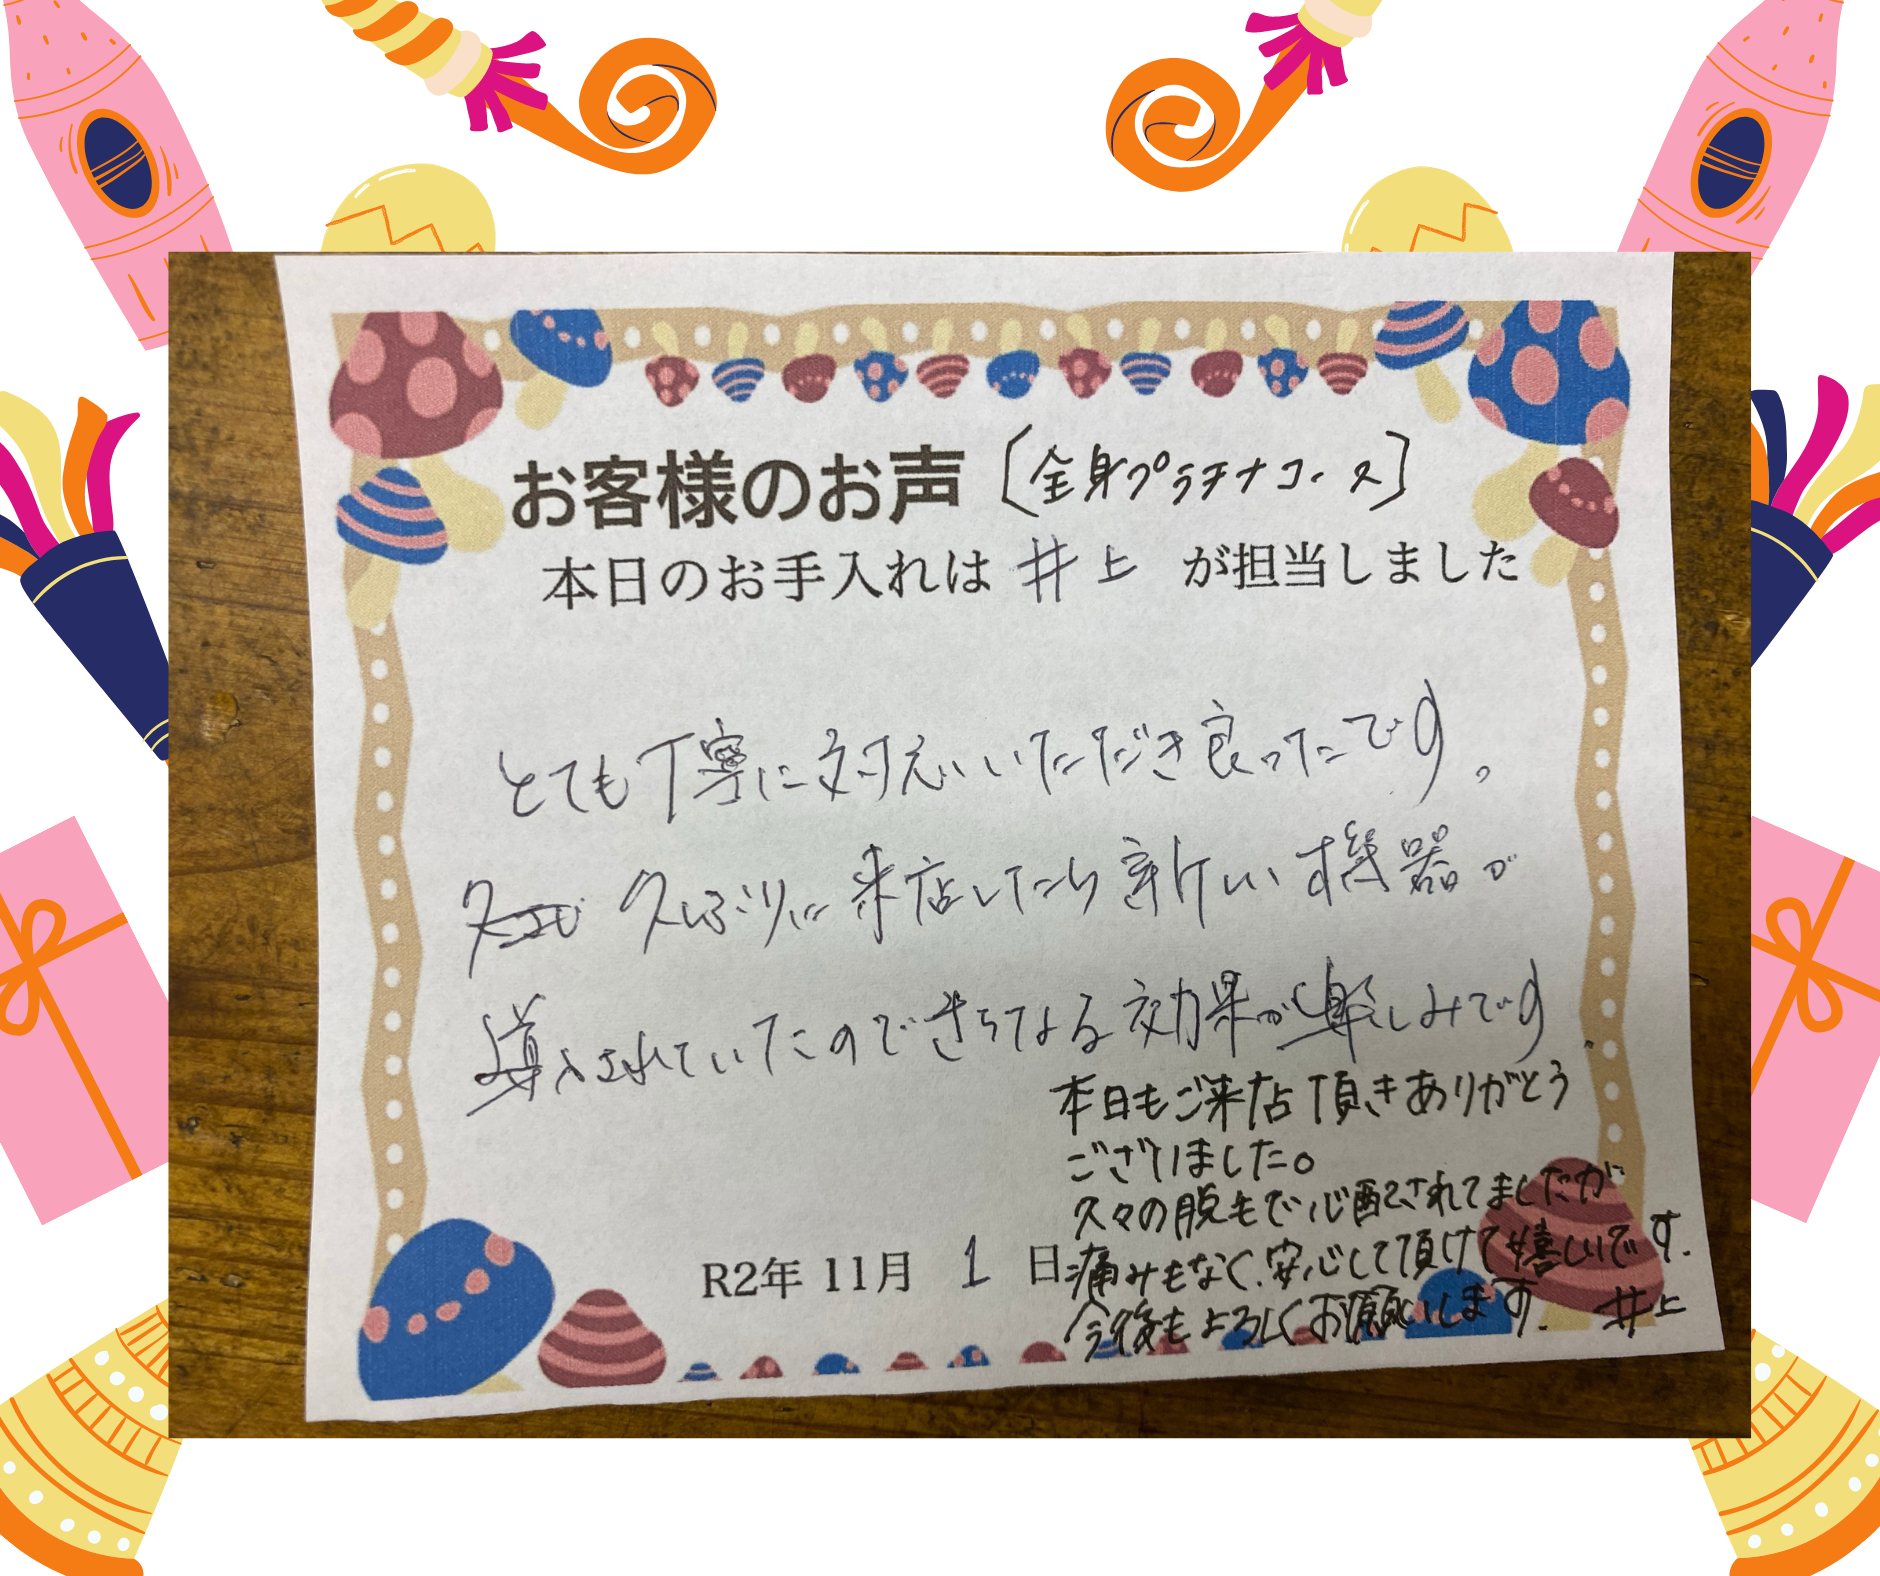 お客様のお声〔全身プラチナコース〕
本日のお手入れは 井上 が担当しました
とても丁寧に対応いただき良ったです。
久しぶりに来店したら新しい機器が
導入されていたのできちてなる効果が楽しみです。
本日もご来店頂きありがとう
ございました。
久々の脱毛で心配されてましたが
痛みもなく、安心して頂けて嬉しいです.
今後もよろしくお願いします. 井上
R2年 11月 1 日